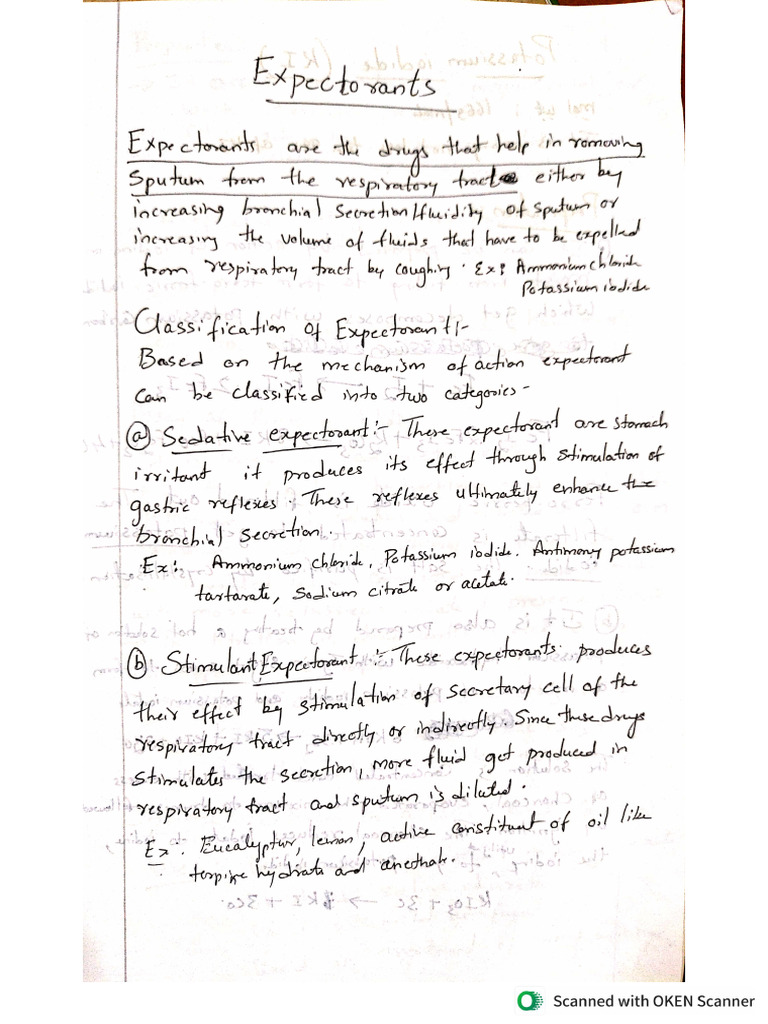 Expectorants
Expectorants are the drugs that help in removing
Sputum from the respiratory tract either by
increasing bronchial secretion/fluidity of sputum or
increasing the volume of fluids that have to be expelled
from respiratory tract by coughing. Ex: Ammonium chloride
Potassium iodide
Classification of Expectorant:-
Based on the mechanism of action expectorant
can be classified into two categories-
(a) Sedative expectorant:- These expectorant are stomach
irritant it produces its effect through stimulation of
gastric reflexes. These reflexes ultimately enhance the
bronchial secretion.
Ex:- Ammonium chloride, Potassium iodide. Antimony potassium
tartarate, Sodium citrate or acetate.
(b) Stimulant Expectorant:- These expectorants produces
their effect by stimulation of secretary cell of the
respiratory tract directly or indirectly. Since these drugs
stimulates the secretion, more fluid get produced in
respiratory tract and sputum is diluted.
Ex: Eucalyptur, lemon, active constituent of oil like
terpine hydrate and
Scanned with OKEN Scanner